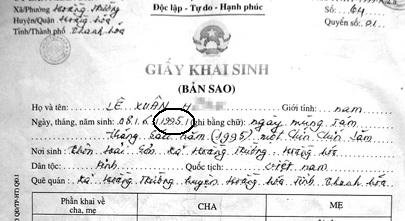 Xã/Phường Hoằng Thường
Độc lập - Tự do - Hạnh phúc
Huyện/Quận Hoằng hóa
Số: 64
Tỉnh/Thành phố Thanh hóa
Quyển số: 01
GIẤY KHAI SINH
(BẢN SAO)
Họ và tên: LÊ XUÂN H Giới tính: nam
Ngày, tháng, năm sinh: 08.1.6.1.1995.1 (Ghi bằng chữ): ngày mùng tám
Tháng sáu năm (1995) một Chín Chín Lăm
Nơi sinh: Thôn Xã Hoằng Thường Hoằng hóa
Dân tộc: Kinh Quốc tịch: Việt nam
Quê quán: Xã Hoằng Thường huyện Hoằng hóa Tỉnh Thanh hóa
Phần khai về cha, mẹ
CHA
MẸ